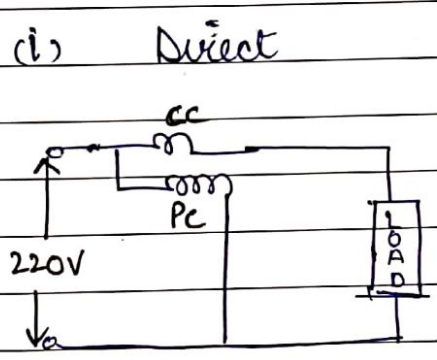 (i) Direct
CC
PC
220V
LOAD